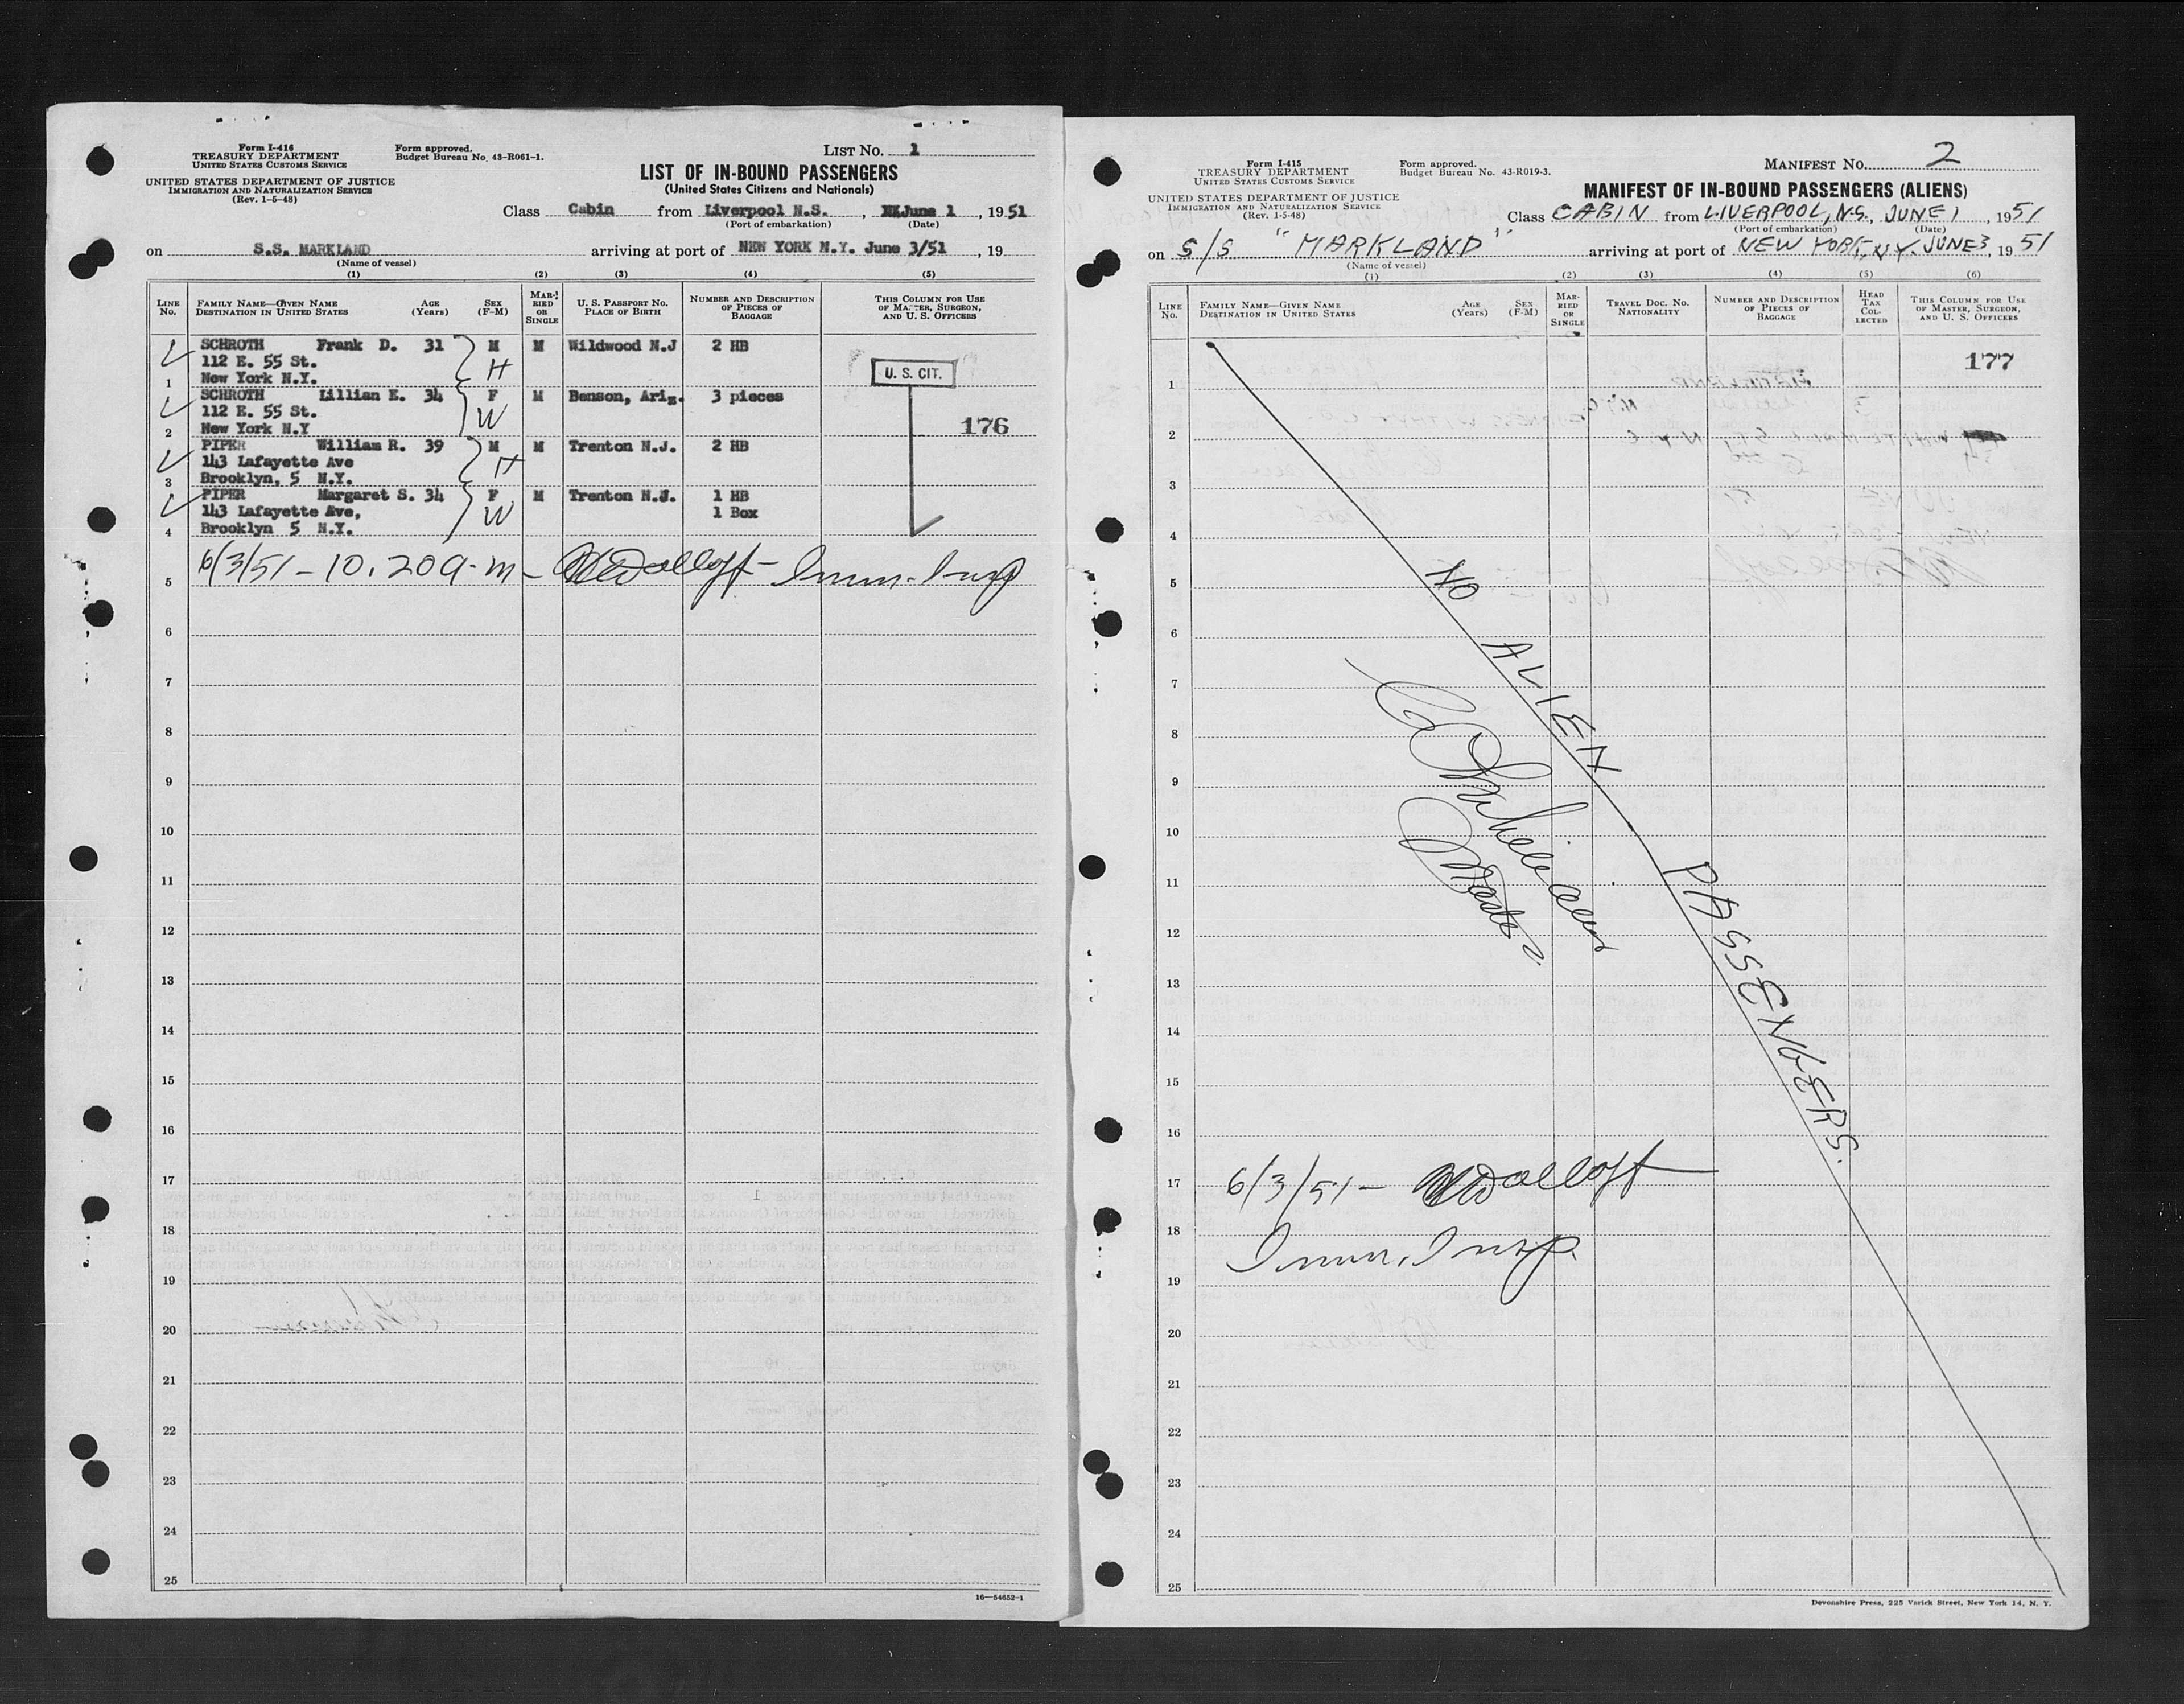 Form I-416
TREASURY DEPARTMENT
UNITED STATES CUSTOMS SERVICE
UNITED STATES DEPARTMENT OF JUSTICE
IMMIGRATION AND NATURALIZATION SERVICE
(Rev. 1-5-48)
Form approved.
Budget Bureau No. 43-R061-1.
LIST NO. 1
LIST OF IN-BOUND PASSENGERS
(United States Citizens and Nationals)
Class Cabin from Liverpool N.S. , June 1 , 1951
(Port of embarkation) (Date)
on S.S. MARKLAND arriving at port of NEW YORK N.Y. June 3/51 , 19
(Name of vessel)
(1) (2) (3) (4) (5)
LINE No. FAMILY NAME—GIVEN NAME DESTINATION IN UNITED STATES AGE (Years) SEX (F-M) MARRIED OR SINGLE U. S. PASSPORT NO. PLACE OF BIRTH NUMBER AND DESCRIPTION OF PIECES OF BAGGAGE THIS COLUMN FOR USE OF MASTER, SURGEON, AND U. S. OFFICERS
SCHROTH Frank D. 31 M M Wildwood N.J 2 HB
112 E. 55 St. H U. S. CIT.
1 New York N.Y.
SCHROTH Lillian E. 34 F M Benson, Ariz. 3 pieces
112 E. 55 St. W
2 New York N.Y 176
PIPER William R. 39 M M Trenton N.J. 2 HB
143 Lafayette Ave H
3 Brooklyn, 5 N.Y.
PIPER Margaret S. 34 F M Trenton N.J. 1 HB
143 Lafayette Ave, W 1 Box
4 Brooklyn 5 N.Y.
5 6/3/51 - 10.20 a.m - Imm. Insp
6
7
8
9
10
11
12
13
14
15
16
17
18
19
20
21
22
23
24
25
16—54652-1
Form I-415
TREASURY DEPARTMENT
UNITED STATES CUSTOMS SERVICE
UNITED STATES DEPARTMENT OF JUSTICE
IMMIGRATION AND NATURALIZATION SERVICE
(Rev. 1-5-48)
Form approved.
Budget Bureau No. 43-R019-3.
MANIFEST NO. 2
MANIFEST OF IN-BOUND PASSENGERS (ALIENS)
Class CABIN from LIVERPOOL, N.S., JUNE 1 , 1951
(Port of embarkation) (Date)
on S/S "MARKLAND" arriving at port of NEW YORK, N.Y. JUNE 3, 1951
(Name of vessel)
(1) (2) (3) (4) (5) (6)
LINE No. FAMILY NAME—GIVEN NAME DESTINATION IN UNITED STATES AGE (Years) SEX (F-M) MARRIED OR SINGLE TRAVEL DOC. NO. NATIONALITY NUMBER AND DESCRIPTION OF PIECES OF BAGGAGE HEAD TAX COLLECTED THIS COLUMN FOR USE OF MASTER, SURGEON, AND U. S. OFFICERS
177
1
2
3
4
5
6
7
8
9
10
11
12
13
14
15
16
17
18
19
20
21
22
23
24
25
NO ALIEN PASSENGERS.
Master
6/3/51 -
Imm. Insp.
Devonshire Press, 225 Varick Street, New York 14, N. Y.